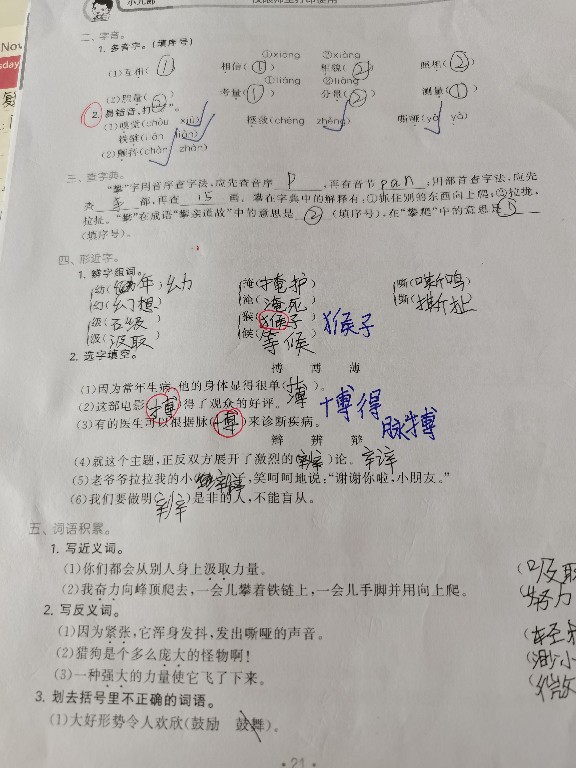 小儿郎
Nov
二、字音。
1. 多音字。(填序号)
①xiāng ②xiàng
(1)互相(①) 相信(①) 相貌(②) 照相(②)
①liáng ②liàng
(2)胆量(②) 考量(①) 分量(②) 测量(①)
2. 易错音,打“√”。
三、查字典。
“攀”字用音序查字法,应先查音序 P ,再查音节 pan ;用部首查字法,应先
查 手 部,再查 15 画。攀在字典中的解释有:①抓住别的东西向上爬;②拉拢,
拉扯。“攀”在成语“攀亲道故”中的意思是 ② (填序号),在“攀爬”中的意思是 ①
(填序号)。
四、形近字。
1. 辨字组词。
幼(幼年) 幼 掩(掩护) 嘶(嘶鸣)
幻(幻想) 淹(淹死) 撕(撕扯)
级(五级) 猴(猴子) 猴子
汲(汲取) 候(等候)
2. 选字填空。
搏 博 薄
(1)因为常年生病,他的身体显得很单(薄)。
(2)这部电影(博)得了观众的好评。 博得
(3)有的医生可以根据脉(搏)来诊断疾病。 脉搏
辫 辨 辩
(4)就这个主题,正反双方展开了激烈的(辩)论。 辩
(5)老爷爷拉拉我的小(辫)子,笑呵呵地说:“谢谢你啦,小朋友。”
(6)我们要做明(辨)是非的人,不能盲从。
五、词语积累。
1. 写近义词。
(1)你们都会从别人身上汲取力量。 (吸取
(2)我奋力向峰顶爬去,一会儿攀着铁链上,一会儿手脚并用向上爬。 努力
2. 写反义词。
(1)因为紧张,它浑身发抖,发出嘶哑的声音。 (轻松
(2)猎狗是个多么庞大的怪物啊! (渺小
(3)一种强大的力量使它飞了下来。 (微
3. 划去括号里不正确的词语。
(1)大好形势令人欢欣(鼓励 鼓舞)。
·21·